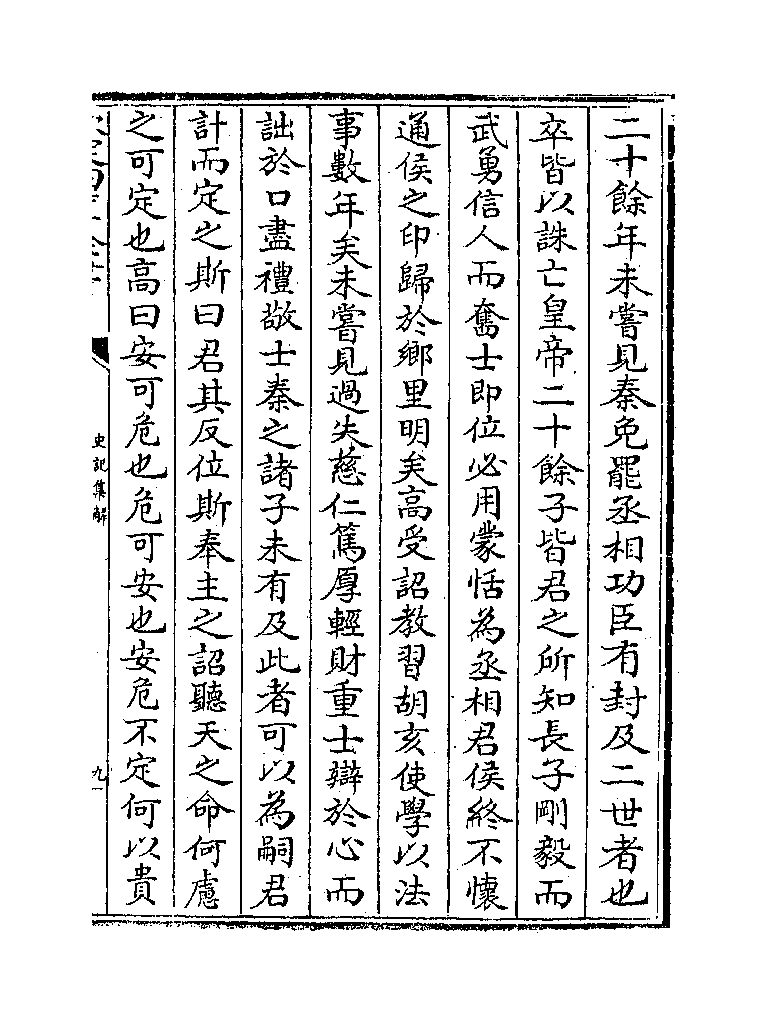 二十餘年未嘗見秦免罷丞相功臣有封及二世者也
卒皆以誅亡皇帝二十餘子皆君之所知長子剛毅而
武勇信人而奮士即位必用蒙恬為丞相君侯終不懷
通侯之印歸於鄉里明矣高受詔教習胡亥使學以法
事數年矣未嘗見過失慈仁篤厚輕財重士辯於心而
詘於口盡禮敬士秦之諸子未有及此者可以為嗣君
計而定之斯曰君其反位斯奉主之詔聽天之命何慮
之可定也高曰安可危也危可安也安危不定何以貴
史記集解
九